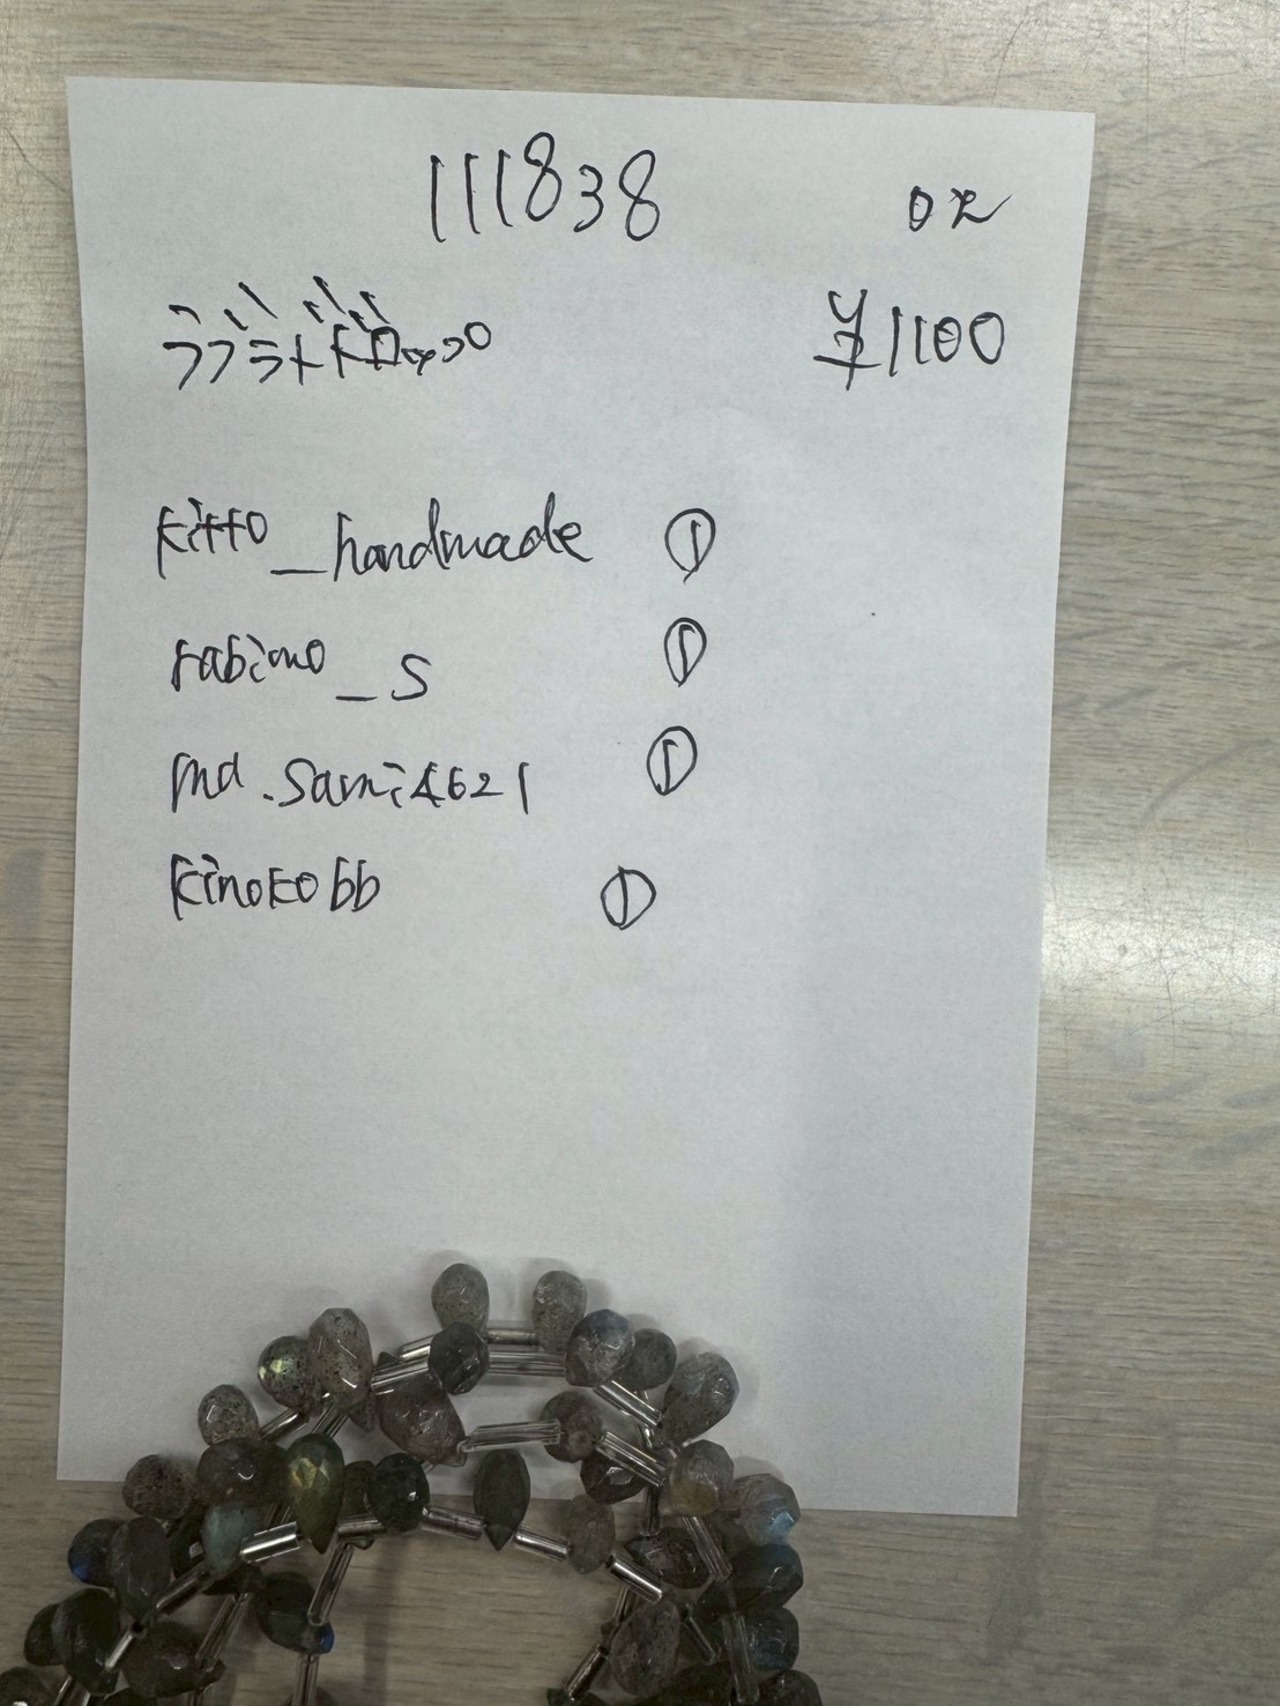 111838
ok
¥1100
kitto_handmade ①
rabimo_s ①
md.sami4621 ①
kinokobb ①